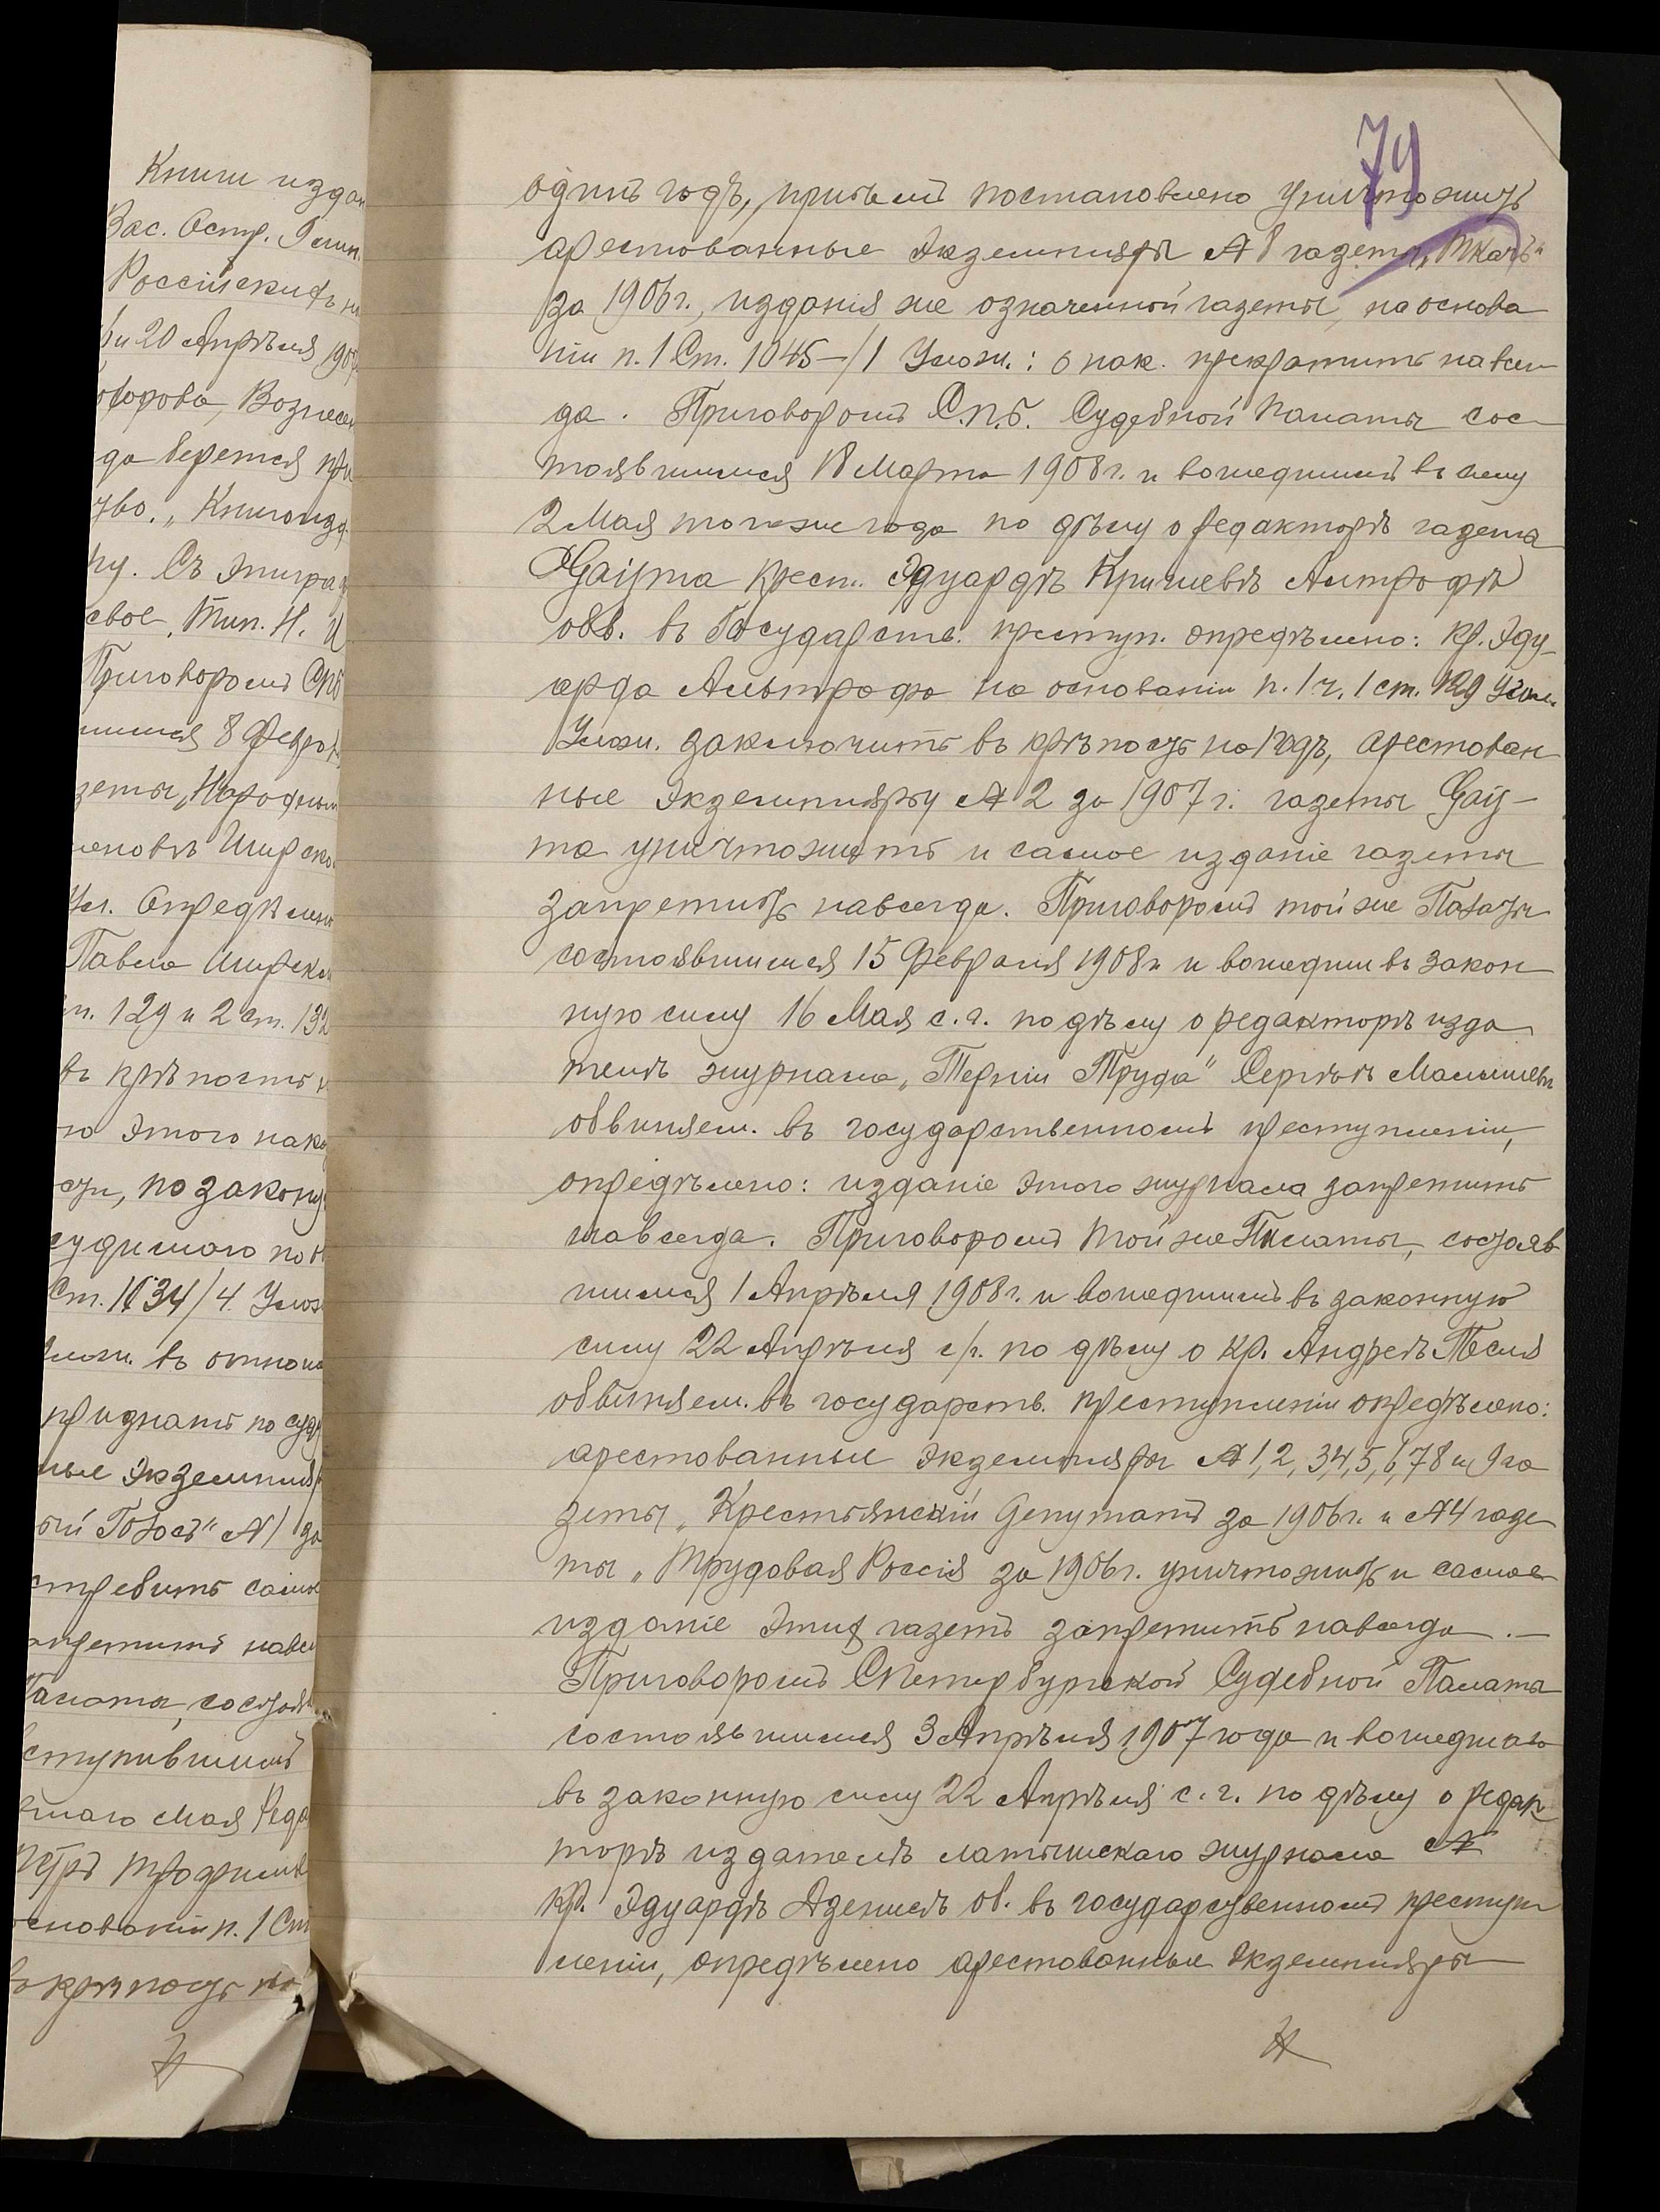 Книги издан
Вас. Остр. 9 лин.
Россійскихъ
и 20 Апрѣля 190
Вознесен
да берется
Книгоизд
Съ эпигра
свое, Тип. Н.
Приговоромъ СПБ
шимся 8 Февра
зеты „Народный
Опредѣлено
Павла Ширск
129 и 2 ст. 132
въ крѣпость
этого нака
по закону
судимаго по
Ст. 1034/4. Улож
въ отнош
признать по суд
ные экземпляр
Голосъ" № 1 за
истребить само
запретить навс
Палаты, состояв
вступившимъ
Мая Реда
Петръ Трофимов
основаніи п. 1 Ст
въ крѣпость на
79
одинъ годъ, причемъ постановлено уничтожить
арестованные экземпляры № 8 газеты „Ткачъ"
за 1906 г., изданія же означенной газеты, на основа
ніи п. 1 Ст. 1045-/1 Улож.: о нак. прекратить навсег
да. Приговоромъ С.П.Б. Судебной Палаты сос-
тоявшимся 18 Марта 1908 г. и вошедшимъ въ силу
2 Мая того же года по дѣлу о редакторѣ газета
Gaisma Крест. Эдуардѣ Кришевѣ
обв. въ Государств. преступ. опредѣлено: кр. Эду-
арда Альтрофа на основаніи п. 1 ч. 1 ст. 129 Угол.
Улож. заключить въ крѣпость на 1 годъ, арестован
ные экземпляры № 2 за 1907 г. газеты Gais-
ma уничтожить и самое изданіе газеты
запретить навсегда. Приговоромъ той же Палаты
состоявшимся 15 Февраля 1908 г. и вошедшим въ закон
ную силу 16 Мая с. г. по дѣлу о редакторѣ изда
телѣ журнала „Терніи Труда" Сергѣѣ Малышевѣ
обвиняем. въ государственномъ преступленіи,
опредѣлено: изданіе этого журнала запретить
навсегда. Приговоромъ той же Палаты, состояв
шимся 1 Апрѣля 1908 г. и вошедшимъ въ законную
силу 22 Апрѣля с/г. по дѣлу о кр. Андреѣ Тесля
обвиняем. въ государств. преступленіи опредѣлено:
арестованные экземпляры № 1, 2, 3, 4, 5, 6, 7 8 и 9 га
зеты „Крестьянскій Депутатъ за 1906 г. и № 4 газе
ты „Трудовая Россія за 1906 г. уничтожить и самое
изданіе этих газетъ запретить навсегда. —
Приговоромъ СПетербургской Судебной Палаты
состоявшимся 3 Апрѣля 1907 года и вошедшаго
въ законную силу 22 Апрѣля с. г. по дѣлу о редак
торѣ издателѣ латышскаго журнала №
кр. Эдуардѣ об. въ государственномъ преступ
леніи, опредѣлено арестованные экземпляры